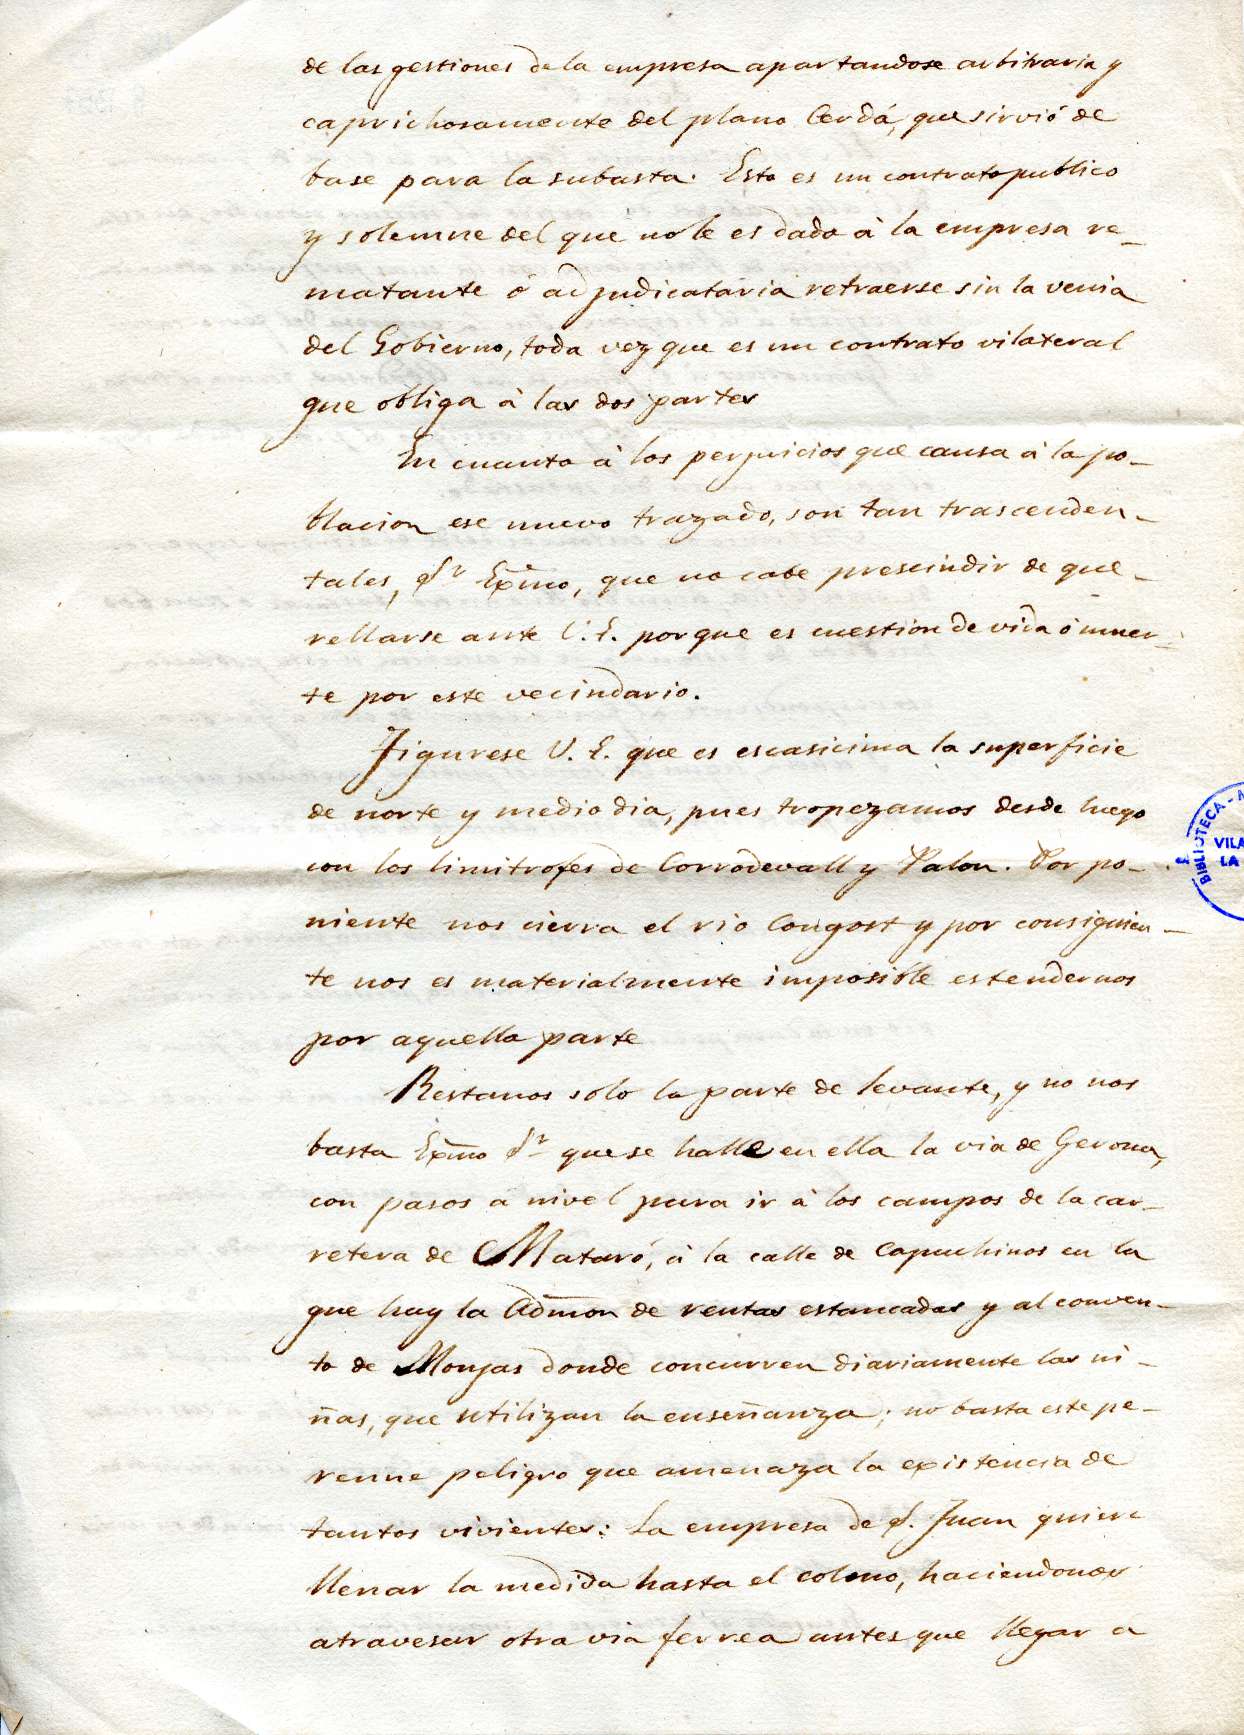 de las gestiones de la empresa apartandose arbitraria y
caprichosamente del plano Cerdá, que sirvió de
base para la subasta. Esto es un contrato publico
y solemne del que no le es dado à la empresa re-
matante ó adjudicataria retraerse sin la venia
del Gobierno, toda vez que es un contrato vilateral
que obliga à las dos partes
En cuanto à los perjuicios que causa à la po-
blacion ese nuevo trazado, son tan trascenden-
tales, Sr Exmo, que no cabe prescindir de que-
rellarse ante V. E. porque es cuestion de vida ó muer-
te por este vecindario.
Figurese V. E. que es escasicima la superficie
de norte y medio dia, pues tropezamos desde luego
con los limitrofes de Corrodevall y Palou. Por po-
niente nos cierra el rio Congost y por consiguien-
te nos es materialmente imposible estendernos
por aquella parte
Restanos solo la parte de levante, y no nos
basta Exmo Sr que se halle en ella la via de Gerona,
con pasos a nivel para ir à los campos de la car-
retera de Mataró, à la calle de Capuchinos en la
que hay la Admon de rentas estancadas y al conven-
to de Monjas donde concurren diariamente las ni-
ñas, que utilizan la enseñanza; no basta este pe-
renne peligro que amenaza la existencia de
tantos vivientes: La empresa de S. Juan quiere
llenar la medida hasta el colmo, haciendonos
atravesar otra via ferrea antes que llegar a
BIBLIOTECA - A
VILA
LA